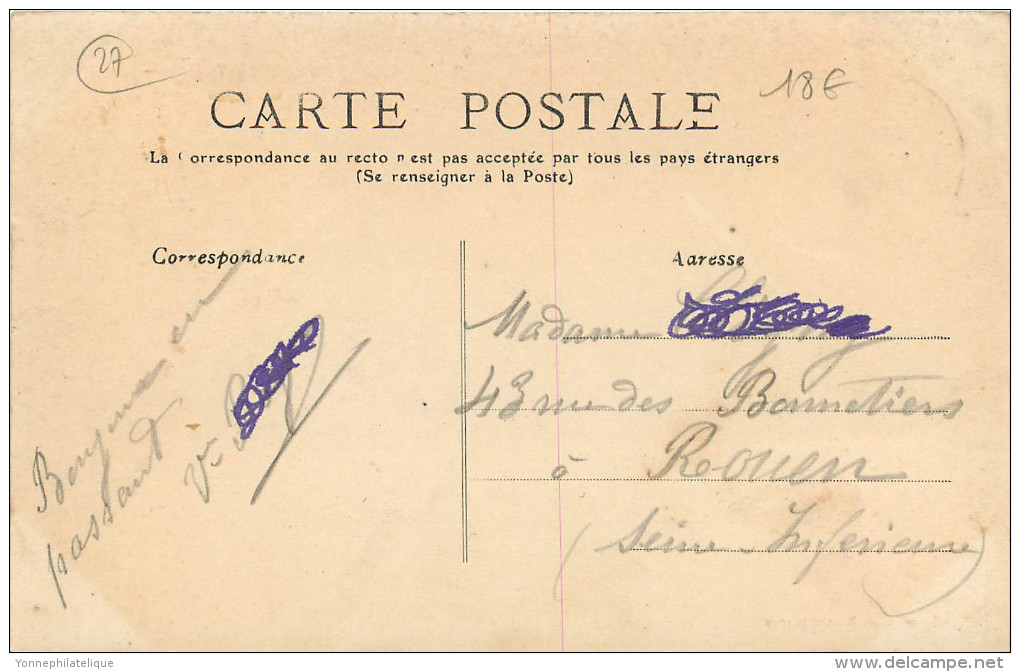 27
18€
CARTE POSTALE
La Correspondance au recto n'est pas acceptée par tous les pays étrangers
(Se renseigner à la Poste)
Correspondance
Adresse
Bonjour en
passant
Madame
43 rue des Bonnetiers
à Rouen
(Seine Inférieure)
Yonnephilatelique
delcampe.net